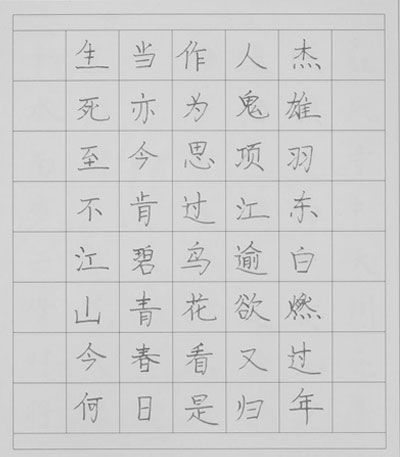 生当作人杰
死亦为鬼雄
至今思项羽
不肯过江东
江碧鸟逾白
山青花欲燃
今春看又过
何日是归年